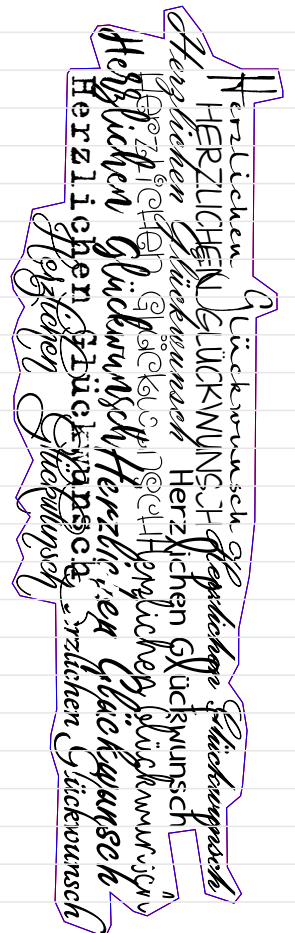 Herzlichen Glückwunsch
HERZLICHEN GLÜCKWUNSCH
Herzlichen Glückwunsch
Herzlichen Glückwunsch
Herzlichen Glückwunsch
Herzlichen Glückwunsch
Herzlichen Glückwunsch
Herzlichen Glückwunsch
Herzlichen Glückwunsch
Herzlichen Glückwunsch
Herzlichen Glückwunsch
Herzlichen Glückwunsch